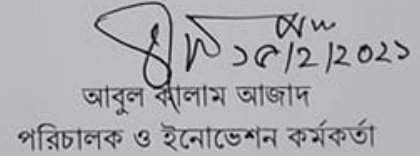 ১৫/2/2০2১
আবুল কালাম আজাদ
পরিচালক ও ইনোভেশন কর্মকর্তা